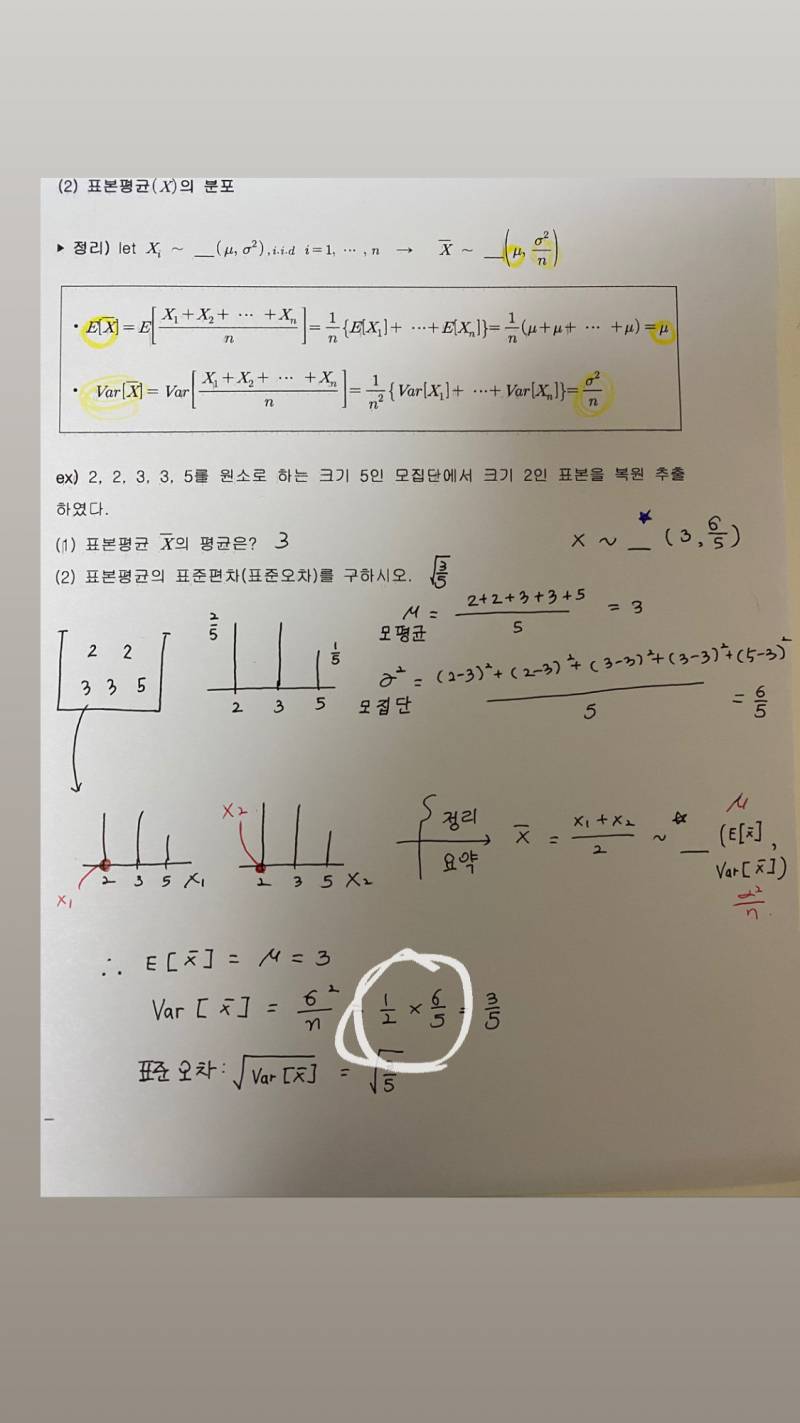 (2) 표본평균(X)의 분포
▶ 정리) let Xᵢ ~ __(μ, σ²), i.i.d i=1, ⋯ , n → X̅ ~ __(μ, σ²/n)
• E[X̅] = E[(X₁+X₂+ ⋯ +Xₙ)/n] = 1/n {E[X₁]+ ⋯+E[Xₙ]} = 1/n (μ+μ+ ⋯ +μ) = μ
• Var[X̅] = Var[(X₁+X₂+ ⋯ +Xₙ)/n] = 1/n² {Var[X₁]+ ⋯+ Var[Xₙ]} = σ²/n
ex) 2, 2, 3, 3, 5를 원소로 하는 크기 5인 모집단에서 크기 2인 표본을 복원 추출
하였다.
(1) 표본평균 X̅의 평균은? 3
X ~ __ (3, 6/5)
(2) 표본평균의 표준편차(표준오차)를 구하시오. √(3/5)
2 2
3 3 5
2/5 1/5
2 3 5
μ = (2+2+3+3+5)/5 = 3
모평균
σ² = ((2-3)²+(2-3)²+(3-3)²+(3-3)²+(5-3)²)/5 = 6/5
모집단
x₁
2 3 5 X₁
X₂
2 3 5 X₂
정리
요약
X̅ = (x₁+x₂)/2 ~ __ (E[x̄], Var[x̄])
μ
σ²/n
∴ E[x̄] = μ = 3
Var[x̄] = σ²/n = 1/2 × 6/5 = 3/5
표준오차: √Var[x̄] = √(3/5)